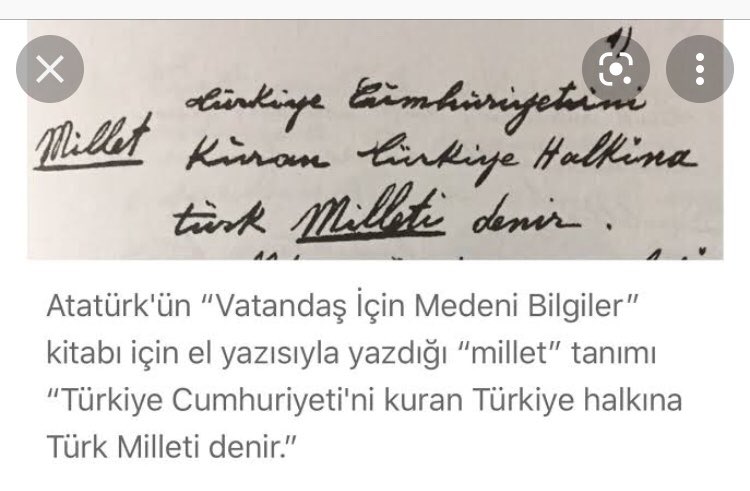 1)
Türkiye Cümhüriyetini
Millet Kûran Türkiye Halkına
türk Milleti denir.
Atatürk'ün “Vatandaş İçin Medeni Bilgiler”
kitabı için el yazısıyla yazdığı “millet” tanımı
“Türkiye Cumhuriyeti'ni kuran Türkiye halkına
Türk Milleti denir.”